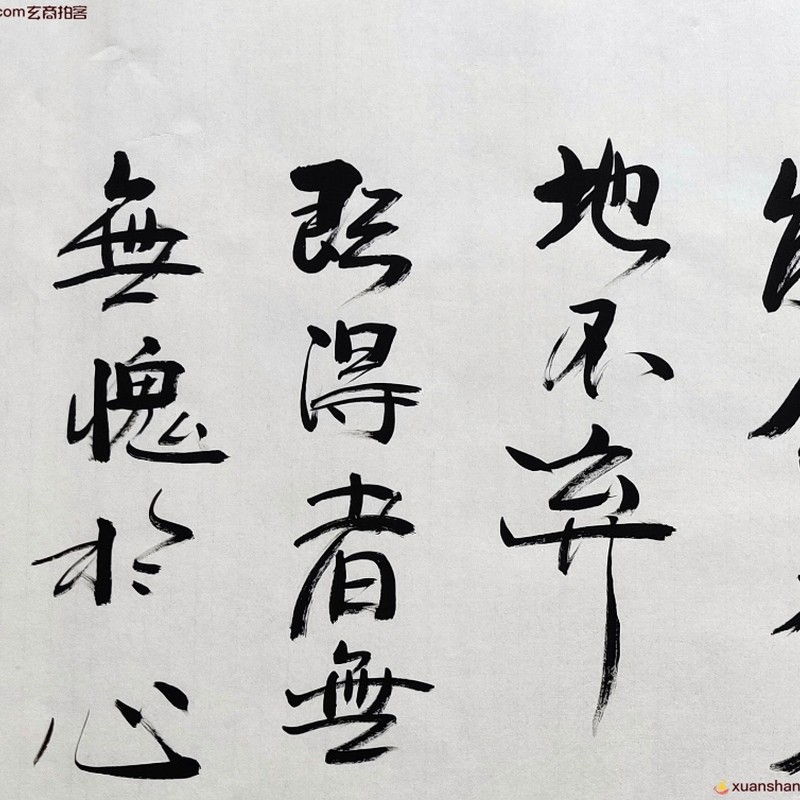 com玄商拍客
地不弃
既得者無
無愧於心
xuanshan